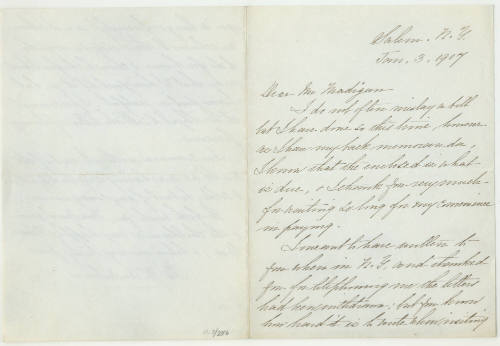 Salem. N.Y.
Jan. 3. 1907
Dear Mr Madigan
I do not often mislay a bill
but I have done so this time, however
as I have my back memoranda,
I know that the enclosed is what
is due, & I thank you very much
for waiting so long for my convenience
in paying.
I meant to have written to
you when in N.Y. and thanked
you for telephoning me the letters
had been withdrawn; but you know
how hard it is to write when visiting